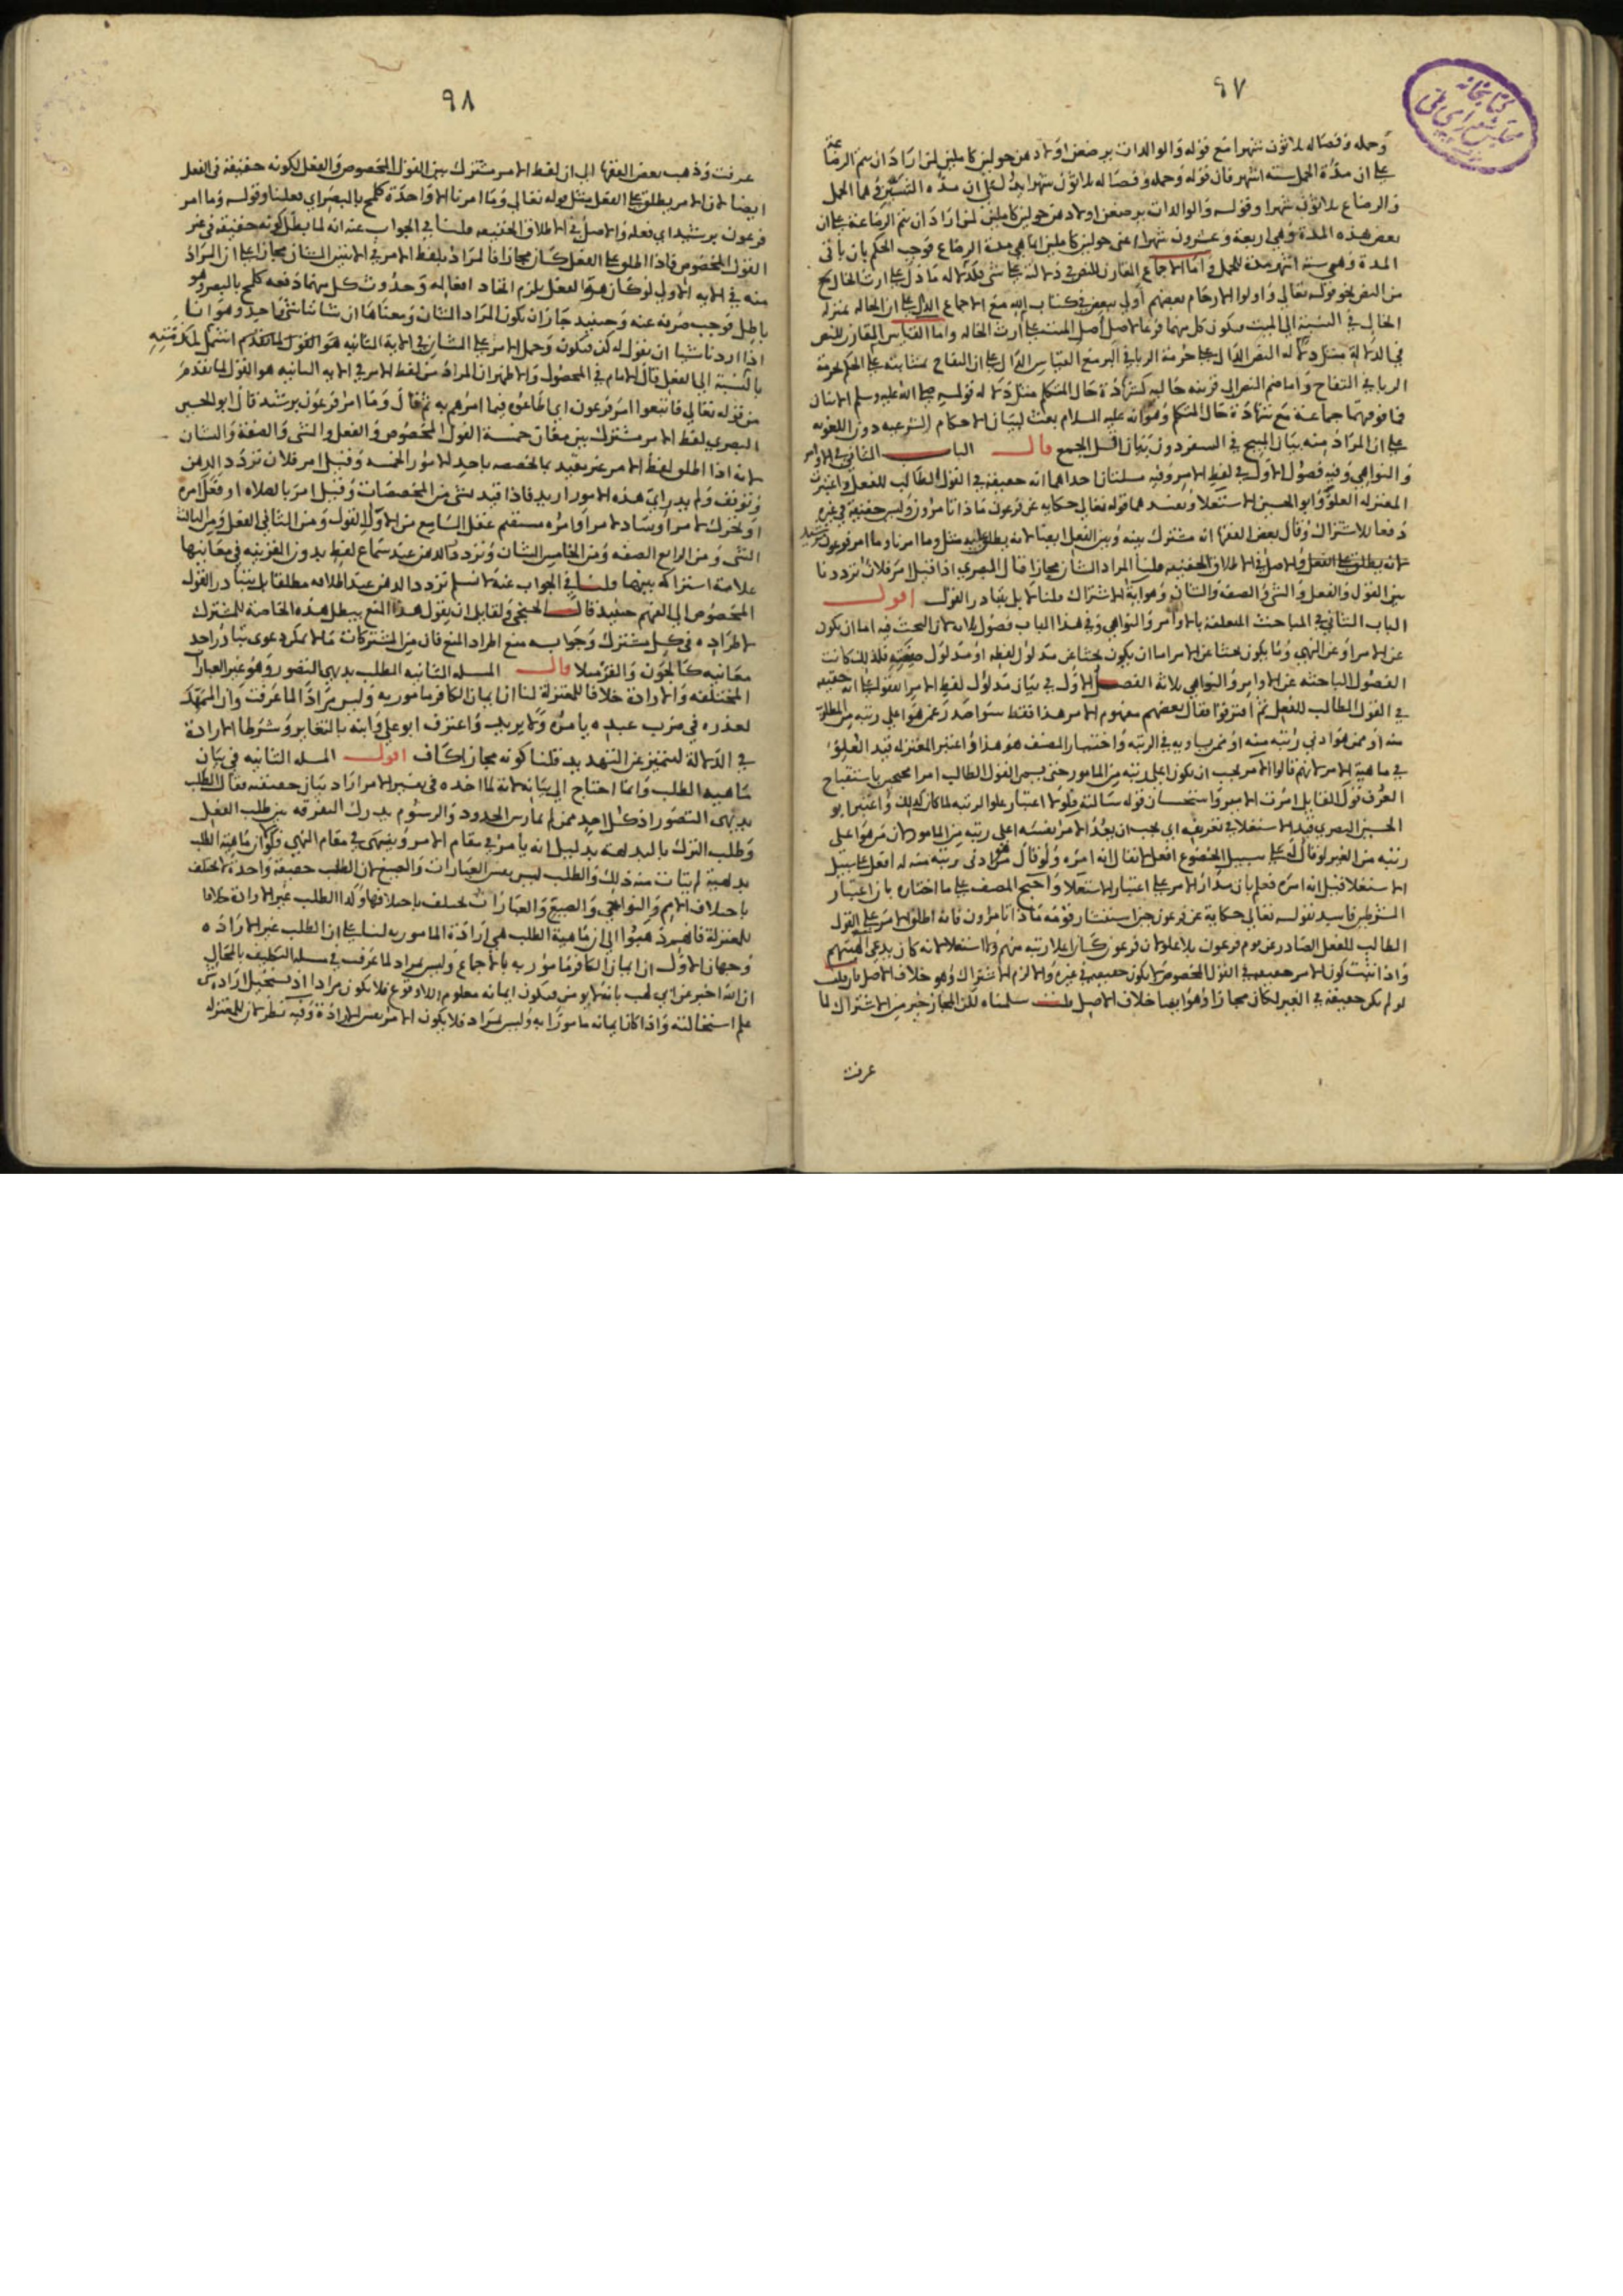 ٩٧
وحمله وفصاله ثلاثون شهرا مع قوله والوالدات يرضعن اولادهن حولين كاملين لمن اراد ان يتم الرضاعة
على ان مدة الحمل ستة اشهر فان قوله وحمله وفصاله ثلاثون شهرا يدل على ان مدة الشيئين وهما الحمل
والرضاع ثلاثون شهرا وقوله والوالدات يرضعن اولادهن حولين كاملين لمن اراد ان يتم الرضاعة على ان
بعض هذه المدة وهي اربعة وعشرون شهرا اعني حولين كاملين انما هي مدة الرضاع فوجب الحكم بان باقي
المدة وهي ستة اشهر مدة للحمل واما الاجماع المقارن للنص في دلالته على شي فكدلالة ما دل على ارث الخال
من النص نحو قوله تعالى واولوا الارحام بعضهم اولى ببعض في كتاب الله مع الاجماع الدال على ان الخالة بمنزلة
الخال في النسبة الى الميت فيكون كل منهما فرعا لاصل اصل الميت على ارث الخالة واما القياس المقارن للنص
في الدلالة مثل دلالة النص الدال على حرمة الربا في البر مع القياس الدال على ان التفاح بمثابته على الحكم بحرمة
الربا في التفاح واما ضم النص الى قرينة حالية كشهادة حال المتكلم مثل دلالة قوله صلى الله عليه وسلم الاثنان
فما فوقهما جماعة مع شهادة حال المتكلم وهو انه عليه السلام بعث لبيان الاحكام الشرعية دون اللغوية
على ان المراد منه بيان المبيح في السفر دون بيان اقل الجمع قال الباب الثاني في الاوامر
والنواهي وفيه فصول الاول في لفظ الامر وفيه مسئلتان احداهما انه حقيقة في القول الطالب للفعل واعتبرت
المعتزلة العلو وابو الحسين الاستعلاء ويفسدهما قوله تعالى حكاية عن فرعون ماذا تامرون وليس حقيقة في غيره
دفعا للاشتراك وقال بعض الفقها انه مشترك بينه وبين الفعل ايضا لانه يطلق عليه مثل وما امرنا وما امر فرعون برشيد
لانه يطلق على الفعل والاصل في الاطلاق الحقيقة قلنا المراد الشان مجازا قال البصري اذا قيل امر فلان ترددنا
بين القول والفعل والشي والصفة والشان وهو اية الاشتراك قلنا لا بل يتبادر القول اقول
الباب الثاني في المباحث المتعلقة بالاوامر والنواهي وفي هذا الباب فصول ثلاثة لان البحث فيه اما ان يكون
عن الامر او عن النهي وما يكون بحثا عن الامر اما ان يكون بحثا عن مدلول لفظه او مدلول صيغته فلذلك كانت
الفصول الباحثة عن الاوامر والنواهي ثلاثة الفصل الاول في بيان مدلول لفظ الامر اتفقوا على انه حقيقة
في القول الطالب للفعل ثم افترقوا فقال بعضهم مفهوم الامر هذا فقط سواء صدر عمن هو اعلى رتبة من المطلوب
منه او ممن هو ادنى رتبة منه او ممن يساويه في الرتبة واختيار المصنف هو هذا واعتبر المعتزلة قيد العلو
في ماهية الامر لانهم قالوا الامر يجب ان يكون اعلى رتبة من المامور حتى يسمى القول الطالب امرا محتجين باستقباح
العرف قول القايل امرت الامير واستحسان قوله سالته فلولا اعتبار علو الرتبة لما كان كذلك واعتبر ابو
الحسين البصري قيد الاستعلا في تعريفه اي يجب ان يعد الامر نفسه اعلى رتبة من المامور لان من هو اعلى
رتبة من الغير لو قال له على سبيل الخضوع افعل لا يقال انه امره ولو قال من هو ادنى رتبة منه له افعل على سبيل
الاستعلا قيل انه امره فعلم بان مدار الامر على اعتبار الاستعلا واحتج المصنف على ما اختاره بان اعتبار
الشرطين فاسد لقوله تعالى حكاية عن فرعون حين استشار قومه ماذا تامرون فانه اطلق الامر على القول
الطالب للفعل الصادر عن قوم فرعون بلا علو لان فرعون كان اعلا رتبة منهم ولا استعلا لانه كان يدعي الهيتهم
واذا ثبت كون الامر حقيقة في القول المخصوص لا يكون حقيقة في غيره والا لزم الاشتراك وهو خلاف الاصل فان قلت
لو لم يكن حقيقة في الغير لكان مجازا وهو ايضا خلاف الاصل قلت سلمناه لكن المجاز خير من الاشتراك لما
عرفت
٩٨
عرفت وذهب بعض الفقها الى ان لفظ الامر مشترك بين القول المخصوص والفعل لكونه حقيقة في الفعل
ايضا لان الامر يطلق على الفعل مثل قوله تعالى وما امرنا الا واحدة كلمح بالبصر اي فعلنا وقوله وما امر
فرعون برشيد اي فعله والاصل في الاطلاق الحقيقة قلنا في الجواب عنه انه لما بطل كونه حقيقة في غير
القول المخصوص فاذا اطلق على الفعل كان مجازا فالمراد بلفظ الامر في الايتين الشان مجازا على ان المراد
منه في الاية الاولى لو كان هو الفعل يلزم اتحاد افعاله وحدوث كل منها دفعة كلمح بالبصر وهو
باطل فوجب صرفه عنه وحينئذ جاز ان يكون المراد الشان ومعناها ان شاننا شي واحد وهو انا
اذا اردنا شيا ان نقول له كن فيكون وحمل الامر على الشان في الاية الثانية هو القول لما تقدم
بالنسبة الى الفعل قال الامام في المحصول والاظهر ان المراد من لفظ الامر في الاية الثانية هو القول لما تقدم
من قوله تعالى فاتبعوا امر فرعون اي اطاعوه فيما امرهم به ثم قال وما امر فرعون برشيد قال ابو الحسين
البصري لفظ الامر مشترك بين معان خمسة القول المخصوص والفعل والشي والصفة والشان
لانه اذا اطلق لفظ الامر غير مقيد بما يخصصه باحد الامور الخمسة وقيل امر فلان تردد الذهن
وتوقف ولم يدر اي هذه الامور اريد فاذا قيد لشي من المخصصات وقيل امر بالصلاة او فعل امره
او تحرك لامر او ساد لامر او امره مستقيم عقل السامع من الاول القول ومن الثاني الفعل ومن الثالث
الشي ومن الرابع الصفة ومن الخامس الشان وتردد الذهن عند سماع لفظ بدون القرينة في معانيها
علامة اشتراكه بينها قلنا في الجواب عنه لا نسلم تردد الذهن عند اطلاقه مطلقا بل يتبادر القول
المخصوص الى الفهم حينئذ قال الخنجي ولقايل ان يقول هذا المنع يبطل هذه الخاصة للمشترك
لاطراده في كل مشترك وجوابه منع اطراد المنع فان من المشتركات ما لا يمكن دعوى تبادر احد
معانيه كالجون والقرء مثلا قال المسلة الثانية الطلب بديهي التصور وهو غير العبارات
المختلفة والارادة خلافا للمعتزلة لنا ان ايمان الكافر مامور به وليس مرادا لما عرفت وان الممهد
لعذره في ضرب عبده يامره ولا يريد واعترف ابو علي وابنه بالتغاير وشرطا الارادة
في الدلالة لتتميز عن التهديد قلنا كونه مجازا كاف اقول المسلة الثانية في بيان
ماهية الطلب وانما احتاج الى بيانه لانه لما اخذه في تفسير الامر اراد بيان حقيقته فقال الطلب
بديهي التصور اذ كل احد ممن لم يمارس الحدود والرسوم يدرك التفرقة بين طلب الفعل
وطلب الترك بالبديهة بدليل انه يامر في مقام الامر وينهى في مقام النهي فلولا ان ماهية الطلب
بديهية لم يتات منه ذلك والطلب ليس نفس العبارات والصيغ لان الطلب حقيقة واحدة لا تختلف
باختلاف الامم والنواحي والصيغ والعبارات تختلف باختلافها وكذا الطلب غير الارادة خلافا
للمعتزلة فانهم ذهبوا الى ان ماهية الطلب هي ارادة المامور به لنا على ان الطلب غير الارادة
وجهان الاول ان ايمان الكافر مامور به بالاجماع وليس بمراد لما عرفت في مسلة التكليف بالمحال
ان الله اخبر عن ابي لهب بانه لا يومن فيكون ايمانه معلوم اللاوقوع فلا يكون مرادا اذ يستحيل ارادة
علم استحالته واذا كان ايمانه مامورا به وليس بمراد فلا يكون الامر نفس الارادة وفيه نظر لان للمعتزلة